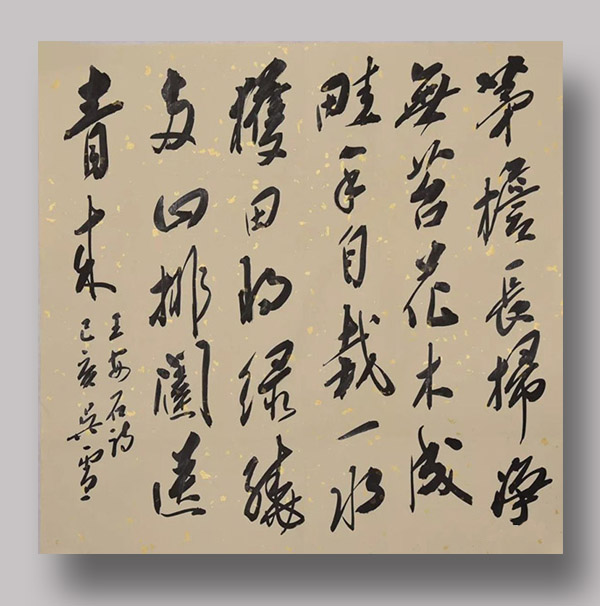 茅檐長掃淨
無苔花木成
畦手自栽一水
護田將綠繞
兩山排闥送
青來
王安石詩
己亥吳雪